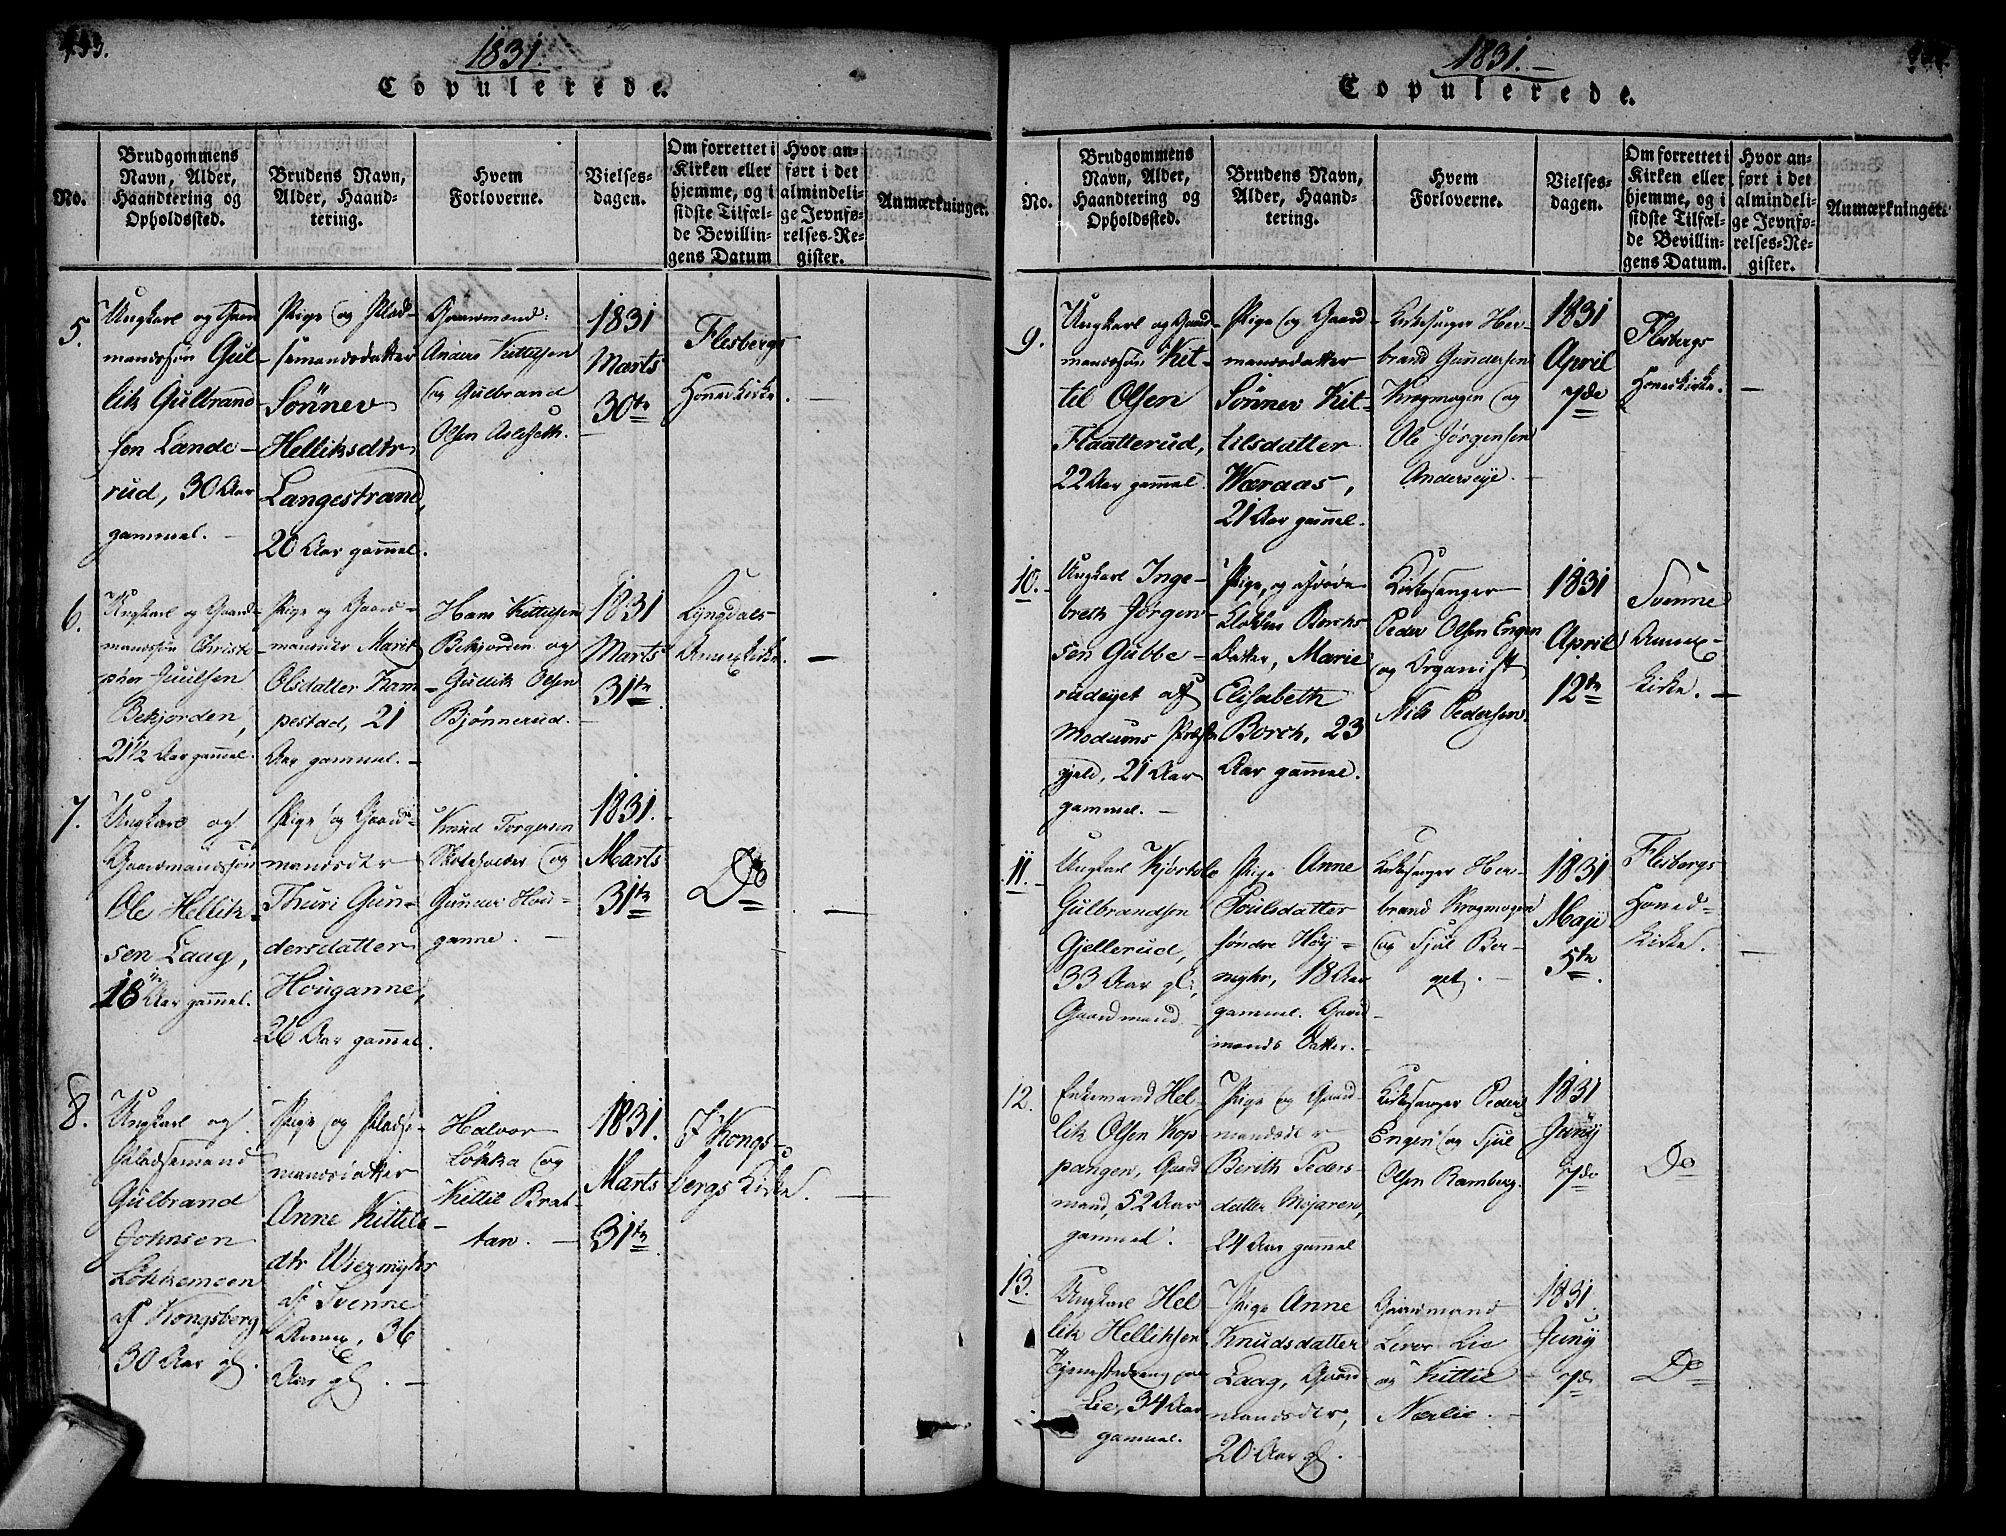 453.
1831.
Copulerede.
No.
Brudgommens
Navn, Alder,
Haandtering og
Opholdssted.
Brudens Navn,
Alder, Haand-
tering.
Hvem
Forloverne.
Vielses-
dagen.
Om forrettet i
Kirken eller
hjemme, og i
sidste Tilfæl-
de Bevillin-
gens Datum
Hvor an-
ført i det
almindeli-
ge Jevnfø-
relses-Re-
gister.
Anmærkninger.
5.
Ungkarl og Gaar
mandssøn Gul-
lik Gulbrand
sen Lande-
rud, 30 Aar
gammel.
Pige og Plad-
semandsdatter
Sønnev
Helliksdtr
Langestrand,
20 Aar gamel.
Gaardmænd:
Anders Kittilsen
og Gulbrand
Olsen Aslefeth.
1831
Marts
30te
Flesbergs
Hovedkirke.
6.
Ungkarl og Gaard-
mandssøn Christo
pher Juulsen
Bekjorden,
21 1/2 Aar gamel.
Pige og Gaard-
Marit
Olsdatter Kam
pestad, 21
Aar gammel.
Hans Kittilsen
Bekjorden og
Gullik Olsen
Bjønnerud.
1831
Marts
31te
Lyngdals
Annexkirke.
7.
Ungkarl og
Gaardmandssøn
Ole Hellik-
sen Laag,
18 1/2 Aar gamel.
Pige og Gaard-
mandsdtr
Thuri Gun-
dersdatter
Houganne,
26 Aar gammel.
Knud Torgersen
Skoleholder og
Gunder Hou-
ganne.
1831.
Marts
31te
Do
8.
Ungkarl og
Pladsemand
Gulbrand
Johnsen
Løkkemoen
af Kongsberg
30 Aar gl.
Pige og Pladse-
mandsdatter
Anne Kittils-
dtr Wiermyhr
af Svenne
Annex, 36
Aar gl.
Halvor
Løkka og
Kittil Brat-
tan.
1831.
Marts
31te
I Kongs-
bergs Kirke.
1831.
Copulerede.
No.
Brudgommens
Navn, Alder,
Haandtering og
Opholdssted.
Brudens Navn,
Alder, Haand-
tering.
Hvem
Forloverne.
Vielses-
dagen.
Om forrettet i
Kirken eller
hjemme, og i
sidste Tilfæl-
de Bevillin-
gens Datum.
Hvor an-
ført i det
almindeli-
ge Jevnfø-
relses-Re-
gister.
Anmærkninger.
9.
Ungkarl og Gaard-
mandssøn Kit-
til Olsen
Flaatterud,
22 Aar gammel.
Pige og Gaard-
mandsdatter
Sønnev Kit-
tilsdatter
Wæraas,
21 Aar gamel.
Kirkesanger Her-
brand Gundersen
Krogmogen og
Ole Jørgensen
Anderseje.
1831
April
7de
Flesbergs
Hovedkirke.
10.
Ungkarl Inge-
breth Jørgen-
sen Gubbe-
rudeyet af
Modums Præste
gjeld, 21 Aar
gammel.
Pige, og afdøde
Klokker Borchs
Datter, Marie
Elisabeth
Borch, 23
Aar gammel.
Kirkesanger
Peder Olsen Engen
og Organist
Nils Pedersen.
1831
April
12te
Svenne
Annex-
kirke.
11.
Ungkarl Kjøstolv
Gulbrandsen
Gjellerud,
33 Aar gl.,
Gaardmand.
Pige Anne
Poulsdatter
søndre Høy-
myhr, 18 Aar
gammel. Gaard-
mands Datter.
Kirkesanger Her-
brand Krogmogen
og Tjøl Ber-
get.
1831
Maji
5te
Flesbergs
Hoved-
kirke.
12.
Enkemand Hel-
lik Olsen Kop
pangen, Gaard
mand, 52 Aar
gammel.
Pige og Gaard-
mandsdtr
Berith Peders-
datter Mojaren,
24 Aar gammel
Kirkesanger Peder
Engen og Tjøl
Olsen Ramberg.
1831
Juny
7de
Do
13.
Ungkarl Hel-
lik Helliksen
Lie, 34 Aar
gammel.
Pige Anne
Knudsdatter
Laag, Gaard-
mandsdtr,
20 Aar gl.
Gaardmand
Lever Lie
og Kittil
Nærlie.
1831.
Juny
7de
Do